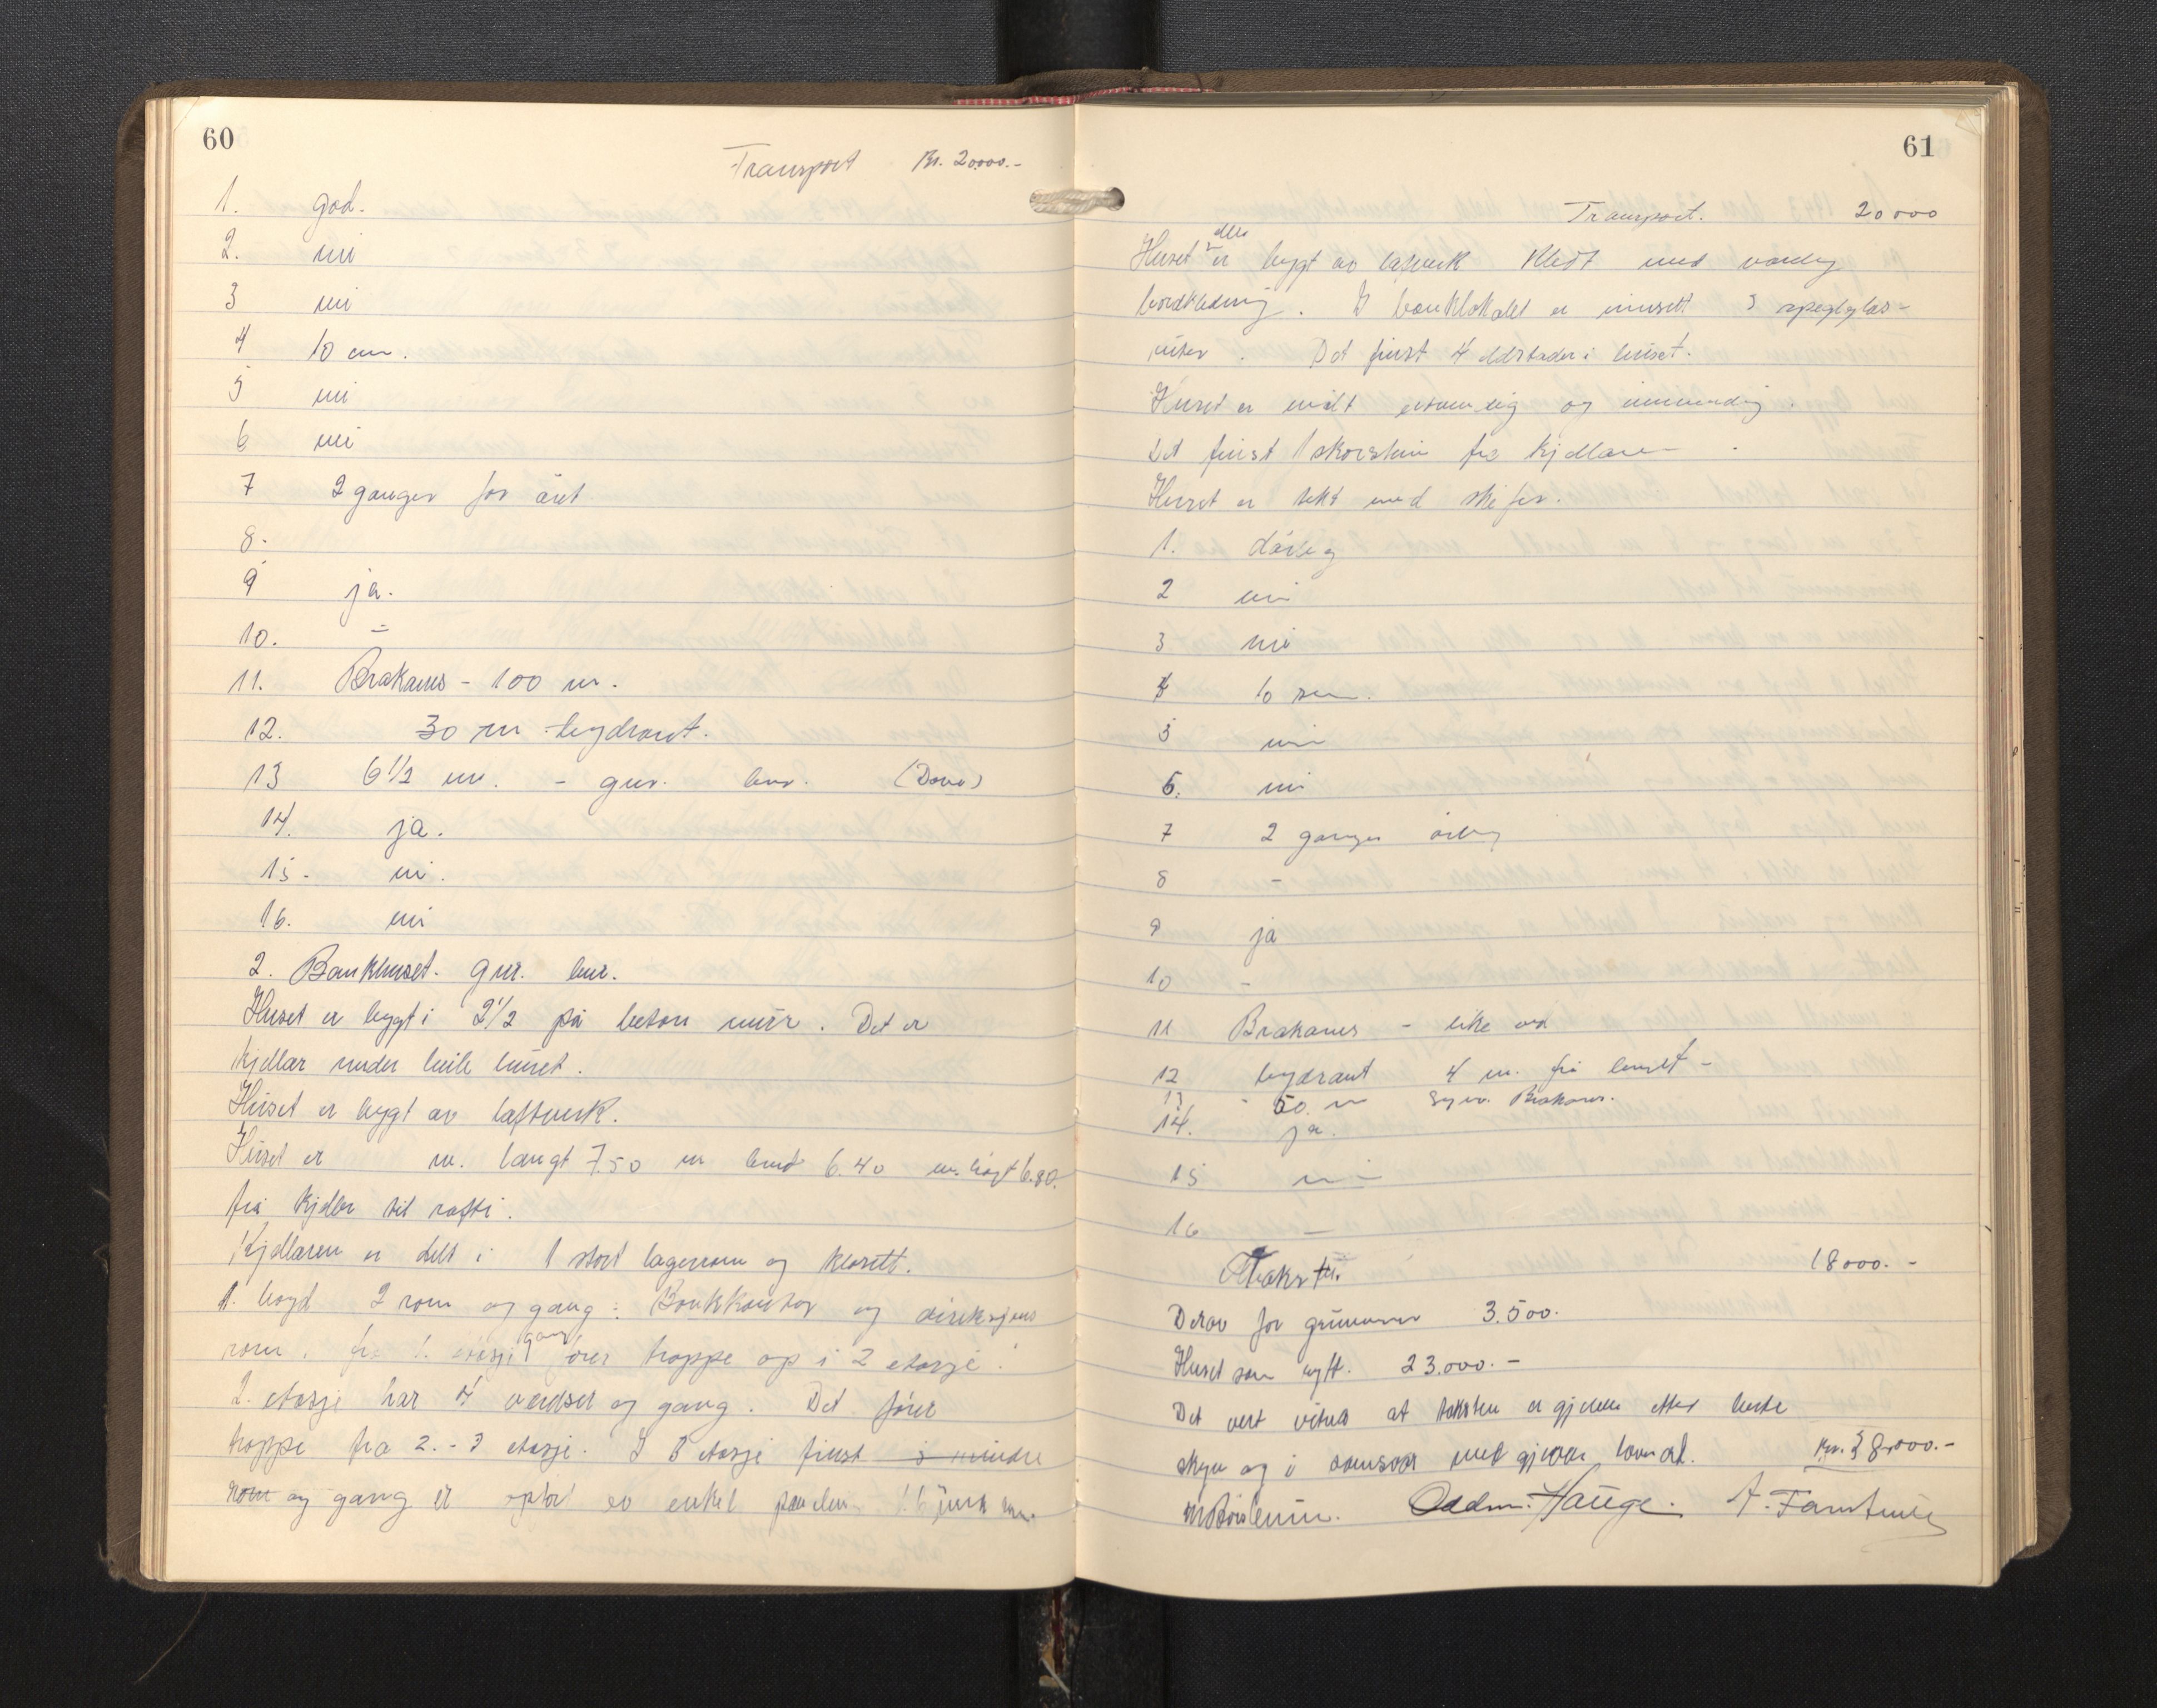 60
Transport Kr. 20000.-
1. god.
2. nei
3 nei
4 10 cm.
5 nei
6 nei
7 2 ganger for året
8.
9 ja.
10. -
11. Brakanes - 100 m.
12. 30 m hydrant.
13 6 1/2 m. - gnr. bnr.
14. ja.
15. nei.
16. nei
2. Bankhuset. gnr. bnr.
Huset er bygt i 2 1/2 på betong mur. Det er
kjellar under heile huset.
Huset er bygt av laftverk.
Huset er m. langt 7.50 m bredt 6.40 m. høgt 6.80.
frå kjellar til rafti.
Kjellaren er delt i 1 stort lagerrom og klosett.
1. høgd 2 rom og gang: Bankkontor og direksjons
rom. fra 1. etasje gang fører troppe op i 2 etasje.
2. etasje har 4 værelser og gang. Det fører
troppe fra 2. - 3 etasje. I 3 etasje finst 3 mindre
rom og gang er av enkel
61
Transport. 20000
Huset er bygt av laftverk kledt med vanleg
bordkledning. I banklokalet er innsett 3 speglglas-
ruter. Det finst 4 eldstader i huset.
Huset er målt utvendig og innvendig.
Det finst 1 skorstein fra kjellaren.
Huset er tekt med skifer.
1. dårleg
2 nei
3 nei
4 10 cm.
5 nei
6. nei
7 2 ganger årleg
8 -
9 ja
10 -
11 Brakanes - like ved
12 hydrant 4 m. frå huset -
13 - 50 m Brakanes.
14. ja.
15 nei
16 -
Takst 18000.-
Derav for grunnmur 3.500.
Huset som nytt. 23.000.-
Det vert vitna at taksten er gjeven etter beste
skjøn og i samsvar med gjevne lovnad. Kr. 38.000.-
Oddm. Hauge.